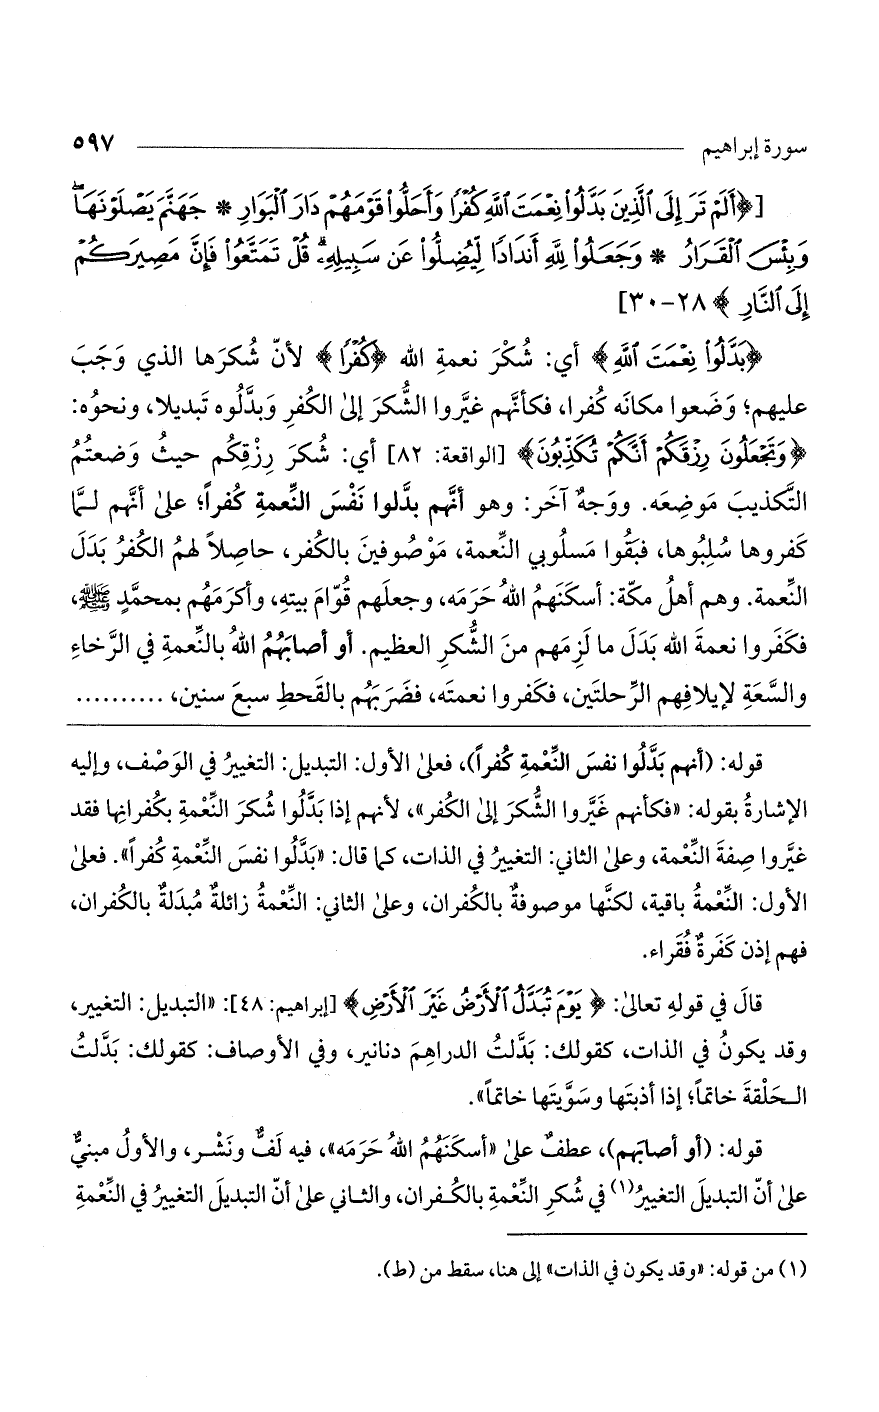 سورة إبراهيم ٥٩٧
[﴿أَلَمْ تَرَ إِلَى ٱلَّذِينَ بَدَّلُوا۟ نِعْمَتَ ٱللَّهِ كُفْرًا وَأَحَلُّوا۟ قَوْمَهُمْ دَارَ ٱلْبَوَارِ * جَهَنَّمَ يَصْلَوْنَهَا ۖ
وَبِئْسَ ٱلْقَرَارُ * وَجَعَلُوا۟ لِلَّهِ أَندَادًا لِّيُضِلُّوا۟ عَن سَبِيلِهِۦ ۗ قُلْ تَمَتَّعُوا۟ فَإِنَّ مَصِيرَكُمْ
إِلَى ٱلنَّارِ﴾ ٢٨-٣٠]
﴿بَدَّلُوا۟ نِعْمَتَ ٱللَّهِ﴾ أي: شُكْرَ نعمةِ الله ﴿كُفْرًا﴾ لأنّ شُكرَها الذي وَجَبَ
عليهم؛ وَضَعوا مكانَه كُفرا، فكأنَّهم غيَّروا الشُّكرَ إلىٰ الكُفرِ وَبدَّلُوه تَبديلا، ونحوُه:
﴿وَتَجْعَلُونَ رِزْقَكُمْ أَنَّكُمْ تُكَذِّبُونَ﴾ [الواقعة: ٨٢] أي: شُكرَ رِزْقِكُم حيثُ وَضعتُمُ
التَّكذيبَ مَوضِعَه. ووَجهٌ آخَر: وهو أنَّهم بدَّلوا نَفْسَ النِّعمةِ كُفراً؛ علىٰ أنَّهم لـمَّا
كَفروها سُلِبُوها، فبَقُوا مَسلُوبي النِّعمة، مَوْصُوفينَ بالكُفر، حاصِلاً لهمُ الكُفرُ بَدَلَ
النِّعمة. وهم أهلُ مكّة: أسكَنَهمُ اللهُ حَرَمَه، وجعلَهم قُوّامَ بيتِهِ، وأكرَمَهُم بمحمَّدٍ ﷺ،
فكَفَروا نعمةَ الله بَدَلَ ما لَزِمَهم منَ الشُّكرِ العظيم. أو أصابَهُمُ اللهُ بالنِّعمةِ في الرَّخاءِ
والسَّعَةِ لإيلافِهم الرِّحلتَين، فكَفروا نعمتَه، فضَرَبَهُم بالقَحطِ سبعَ سنين، ..........
قوله: (أنهم بَدَّلُوا نفسَ النِّعْمةِ كُفراً)، فعلىٰ الأول: التبديل: التغييرُ في الوَصْف، وإليه
الإشارةُ بقوله: «فكأنهم غَيَّروا الشُّكرَ إلىٰ الكُفر»، لأنهم إذا بَدَّلُوا شُكرَ النِّعْمةِ بكُفرانِها فقد
غيَّروا صِفةَ النِّعْمة، وعلىٰ الثاني: التغييرُ في الذات، كما قال: «بَدَّلُوا نفسَ النِّعْمةِ كُفراً». فعلىٰ
الأول: النِّعْمةُ باقية، لكنَّها موصوفةٌ بالكُفران، وعلىٰ الثاني: النِّعْمةُ زائلةٌ مُبدَلةٌ بالكُفران،
فهم إذن كَفَرةٌ فُقَراء.
قالَ في قولِهِ تعالىٰ: ﴿يَوْمَ تُبَدَّلُ ٱلْأَرْضُ غَيْرَ ٱلْأَرْضِ﴾ [إبراهيم: ٤٨]: «التبديل: التغيير،
وقد يكونُ في الذات، كقولك: بَدَّلتُ الدراهِمَ دنانير، وفي الأوصاف: كقولك: بَدَّلتُ
الـحَلْقةَ خاتماً؛ إذا أذبتَها وسَوَّيتَها خاتماً».
قوله: (أو أصابَهم)، عطفٌ علىٰ «أسكَنَهُمُ اللهُ حَرَمَه»، فيه لَفٌّ ونَشْر، والأولُ مبنيٌّ
علىٰ أنّ التبديلَ التغييرُ(١) في شُكرِ النِّعْمةِ بالكُـفران، والثـاني علىٰ أنّ التبديلَ التغييرُ في النِّعْمةِ
(١) من قوله: «وقد يكون في الذات» إلى هنا، سقط من (ط).